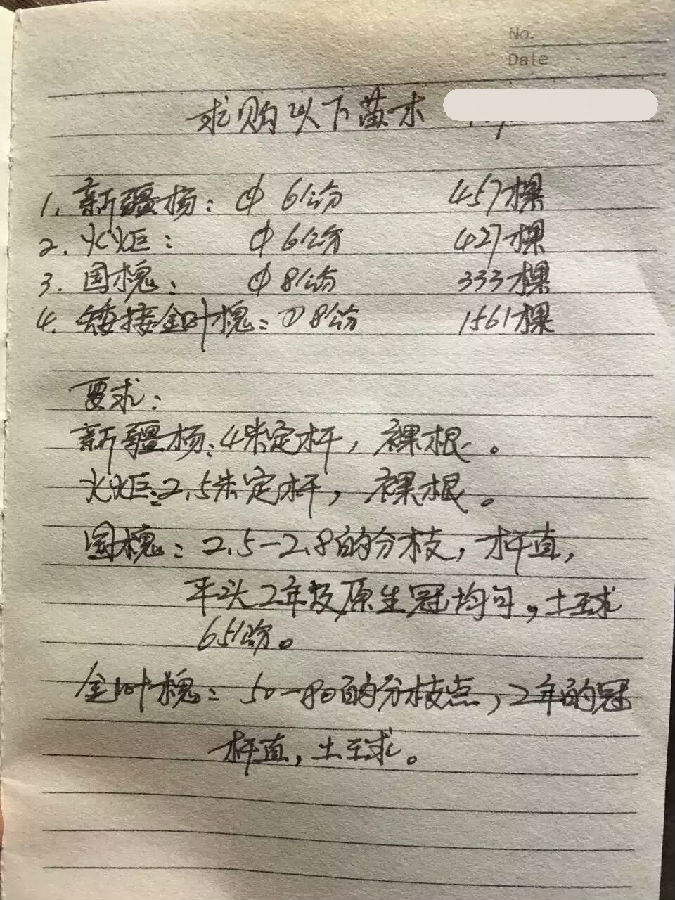 No.
Date
求购以下苗木
1. 新疆杨: φ 6公分 457棵
2. 火炬: φ 6公分 427棵
3. 国槐: φ 8公分 333棵
4. 矮接金叶槐: φ 8公分 1561棵
要求:
新疆杨: 4米定杆, 裸根。
火炬: 2.5米定杆, 裸根。
国槐: 2.5-2.8的分枝, 杆直,
平头2年及原生冠均可, 土球
65公分。
金叶槐: 50-80的分枝点, 2年的冠
杆直, 土球。